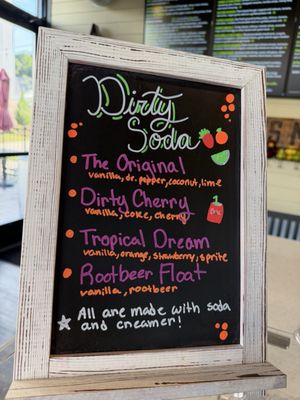 Dirty
Soda
The Original
vanilla, dr. pepper, coconut, lime
Dirty Cherry
vanilla, coke, cherry
Tropical Dream
vanilla, orange, strawberry, sprite
Rootbeer Float
vanilla, rootbeer
All are made with soda
and creamer!